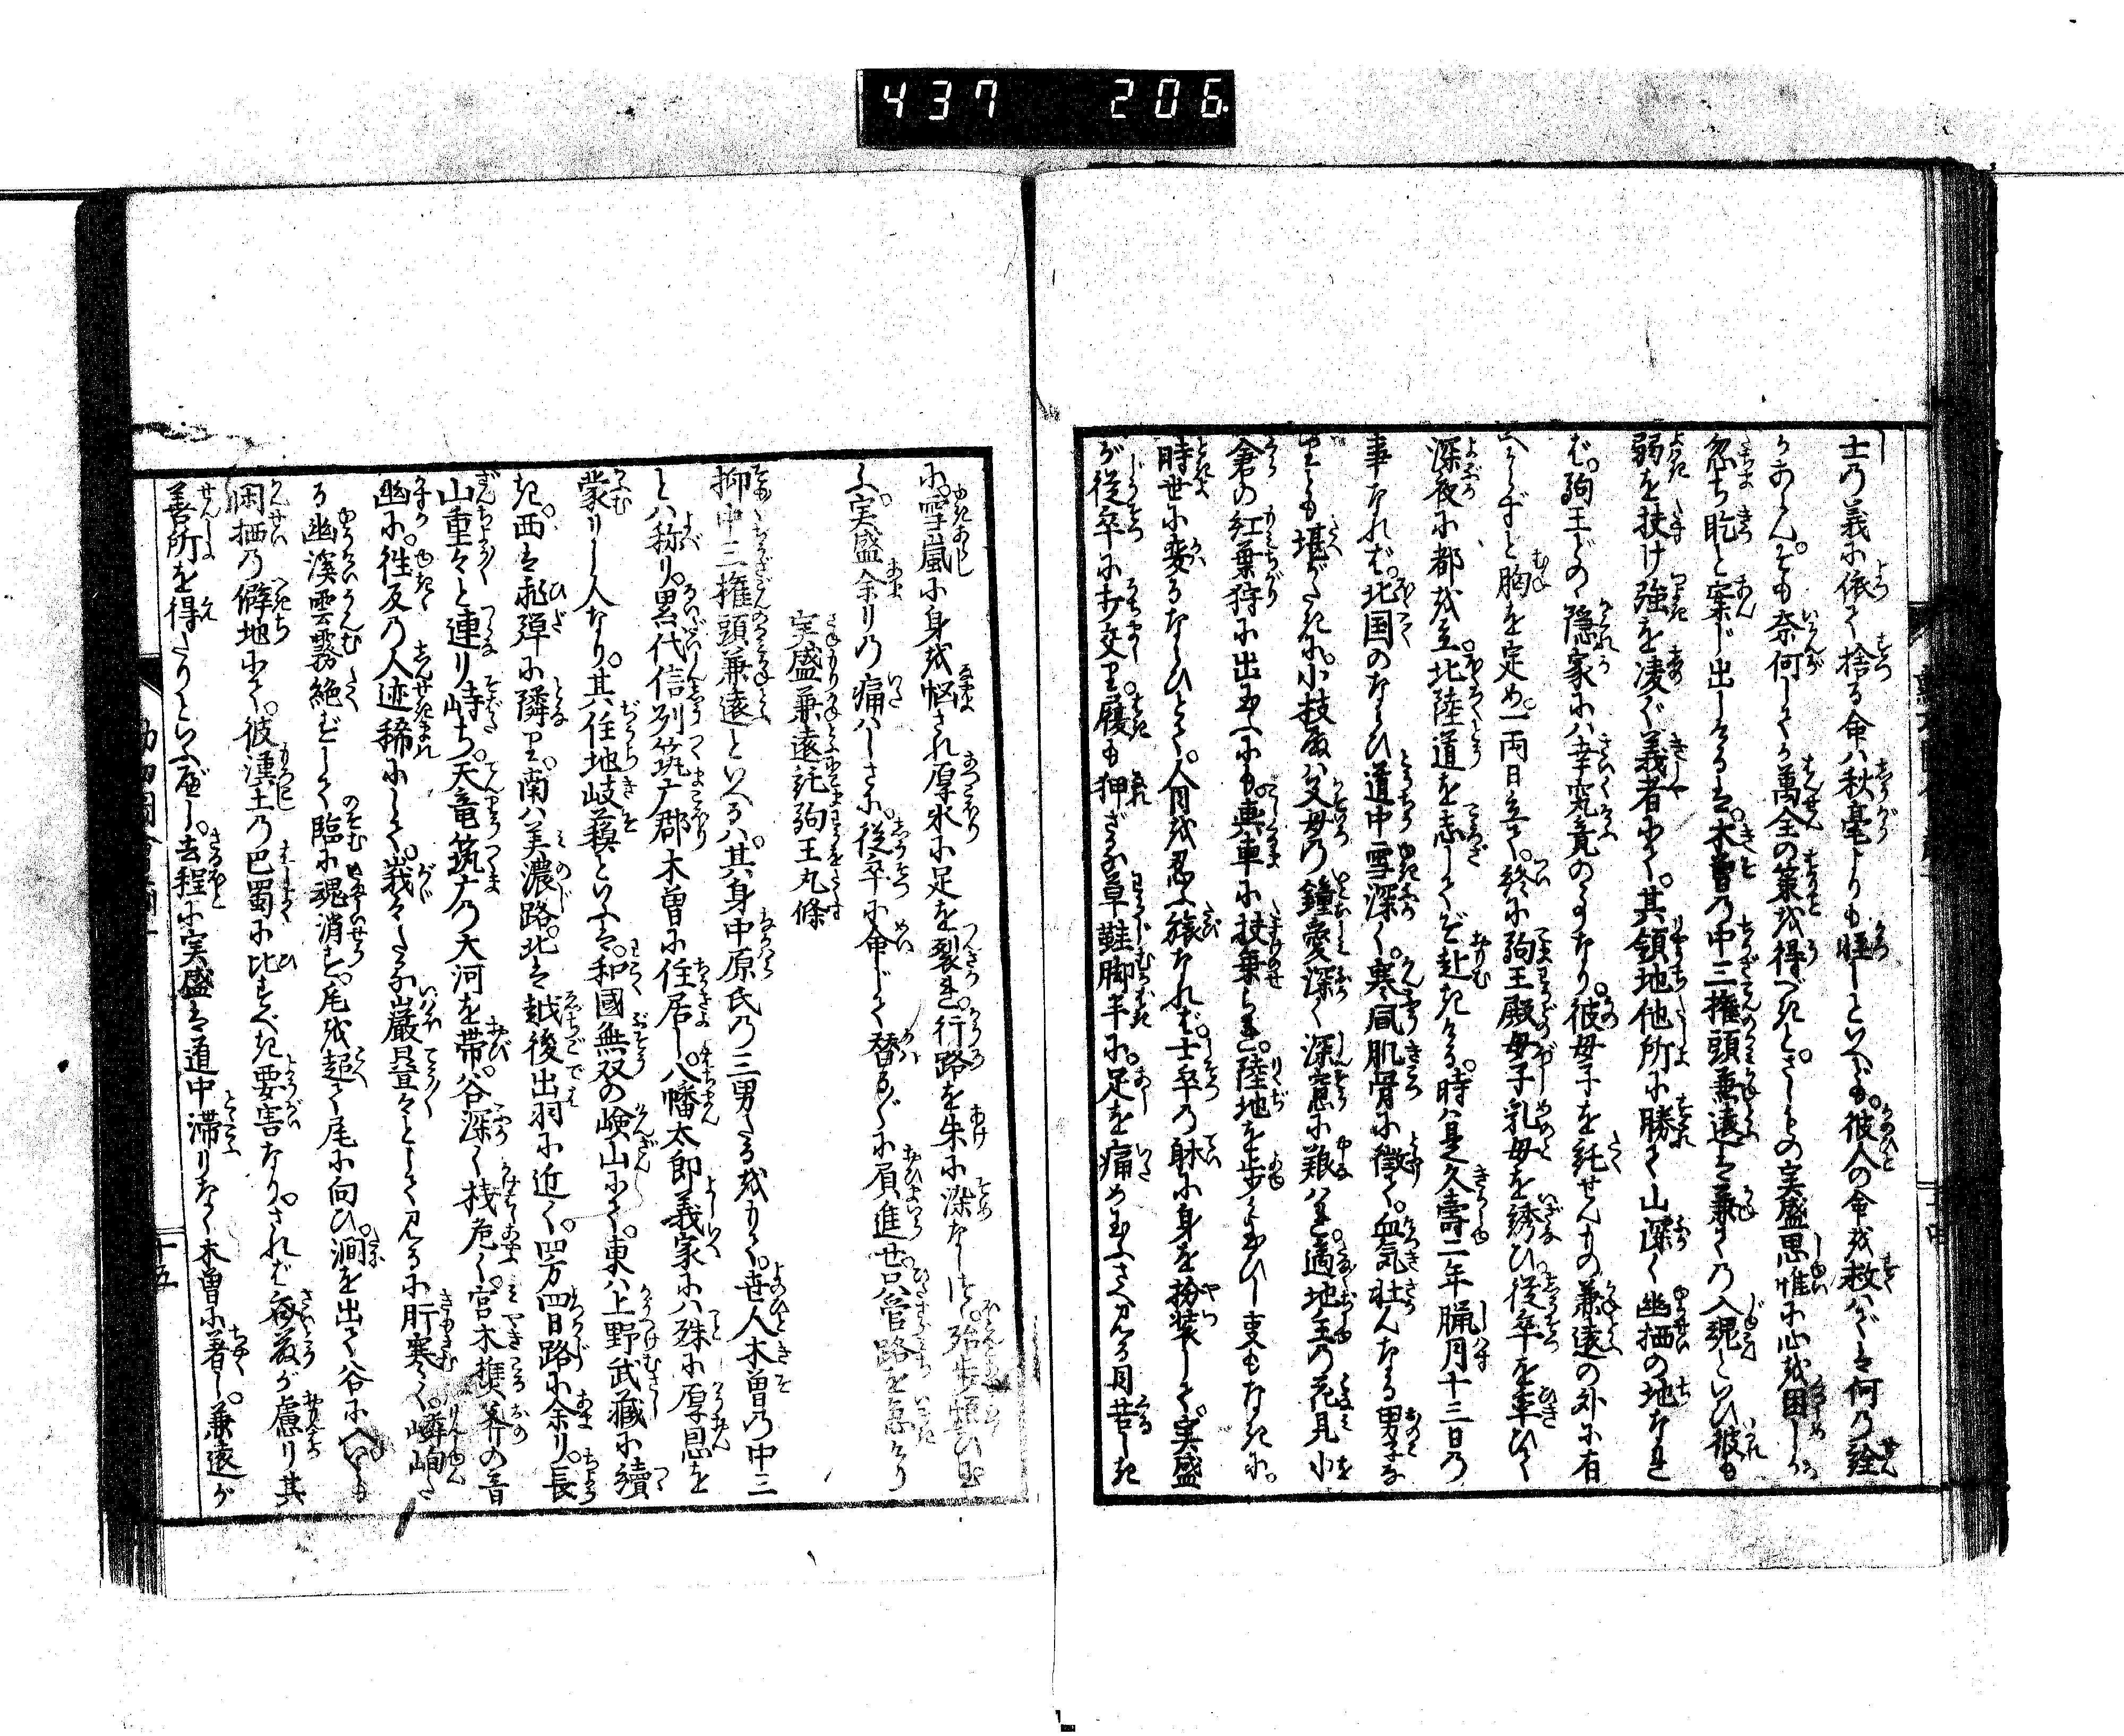 437 206
士の義に依て捨る命は秋毫よりも軽しといへども。彼人の命を救はずは何の詮
かあらん。そも奈何しても萬全の策を得べきと。さしもの実盛思惟に心を困しが
忽ち屹と案じ出しけるは。木曽の中三権頭兼遠は兼ての入魂といひ彼も
弱を扶け強を凌ぐ義者にて。其領地他所に勝て山深く幽栖の地なれ
ば。駒王どのゝ隠家には幸究竟のよりなり。彼母子を託せんもの兼遠の外に有
べからずと胸を定め。一両日立て。終に駒王殿母子乳母を誘ひ。従卒を率ひて
深夜に都を立。北陸道を志してぞ赴きける。時は是久壽二年臘月十三日の
事なれば。北国のならひ道中雪深く。寒風肌骨に徹て。血気壮んなる男子な
りとも堪がたきに。小枝殿は父母の鐘愛深く深窓に艱はれ。適地主の花見小
倉の紅葉狩に出玉ふにも。輿車に扶乗られ。陸地を歩み玉ひし事もなきに。
時世に変るならひとて。人目を忍ぶ旅なれば。士卒の躰に身を扮装して。実盛
が従卒に打交り。履も狎ざる草鞋脚半に。足を痛め玉ふさへ見る目苦しき
に。雪嵐に身を悩され厚氷に足を裂れ。行路を朱に染なしつ。殆歩煩ひ玉
ふ。実盛余りの痛はしさに。従卒に命じて替る〴〵に肩負進せ。只管路を急けり
実盛兼遠託駒王丸條
抑中三権頭兼遠といへるは。其身中原氏の三男たるをもて。世人木曽の中三
とは称り。累代信州筑广郡木曽に住居し。八幡太郎義家には殊に厚恩を
蒙りし人なり。其住地岐蘓といふは。和國無双の嶮山にて。東は上野武蔵に續
き。西は飛弾に隣り。南は美濃路。北は越後出羽に近く。四方四日路に余り。長
山重々と連り峙ち。天竜筑广の大河を帯。谷深く桟危く。宮木樵斧の音
幽に。徃反の人迹稀にして。峩々たる巌畳々として見るに肝寒く。嶙峋た
る幽溪雲霧絶ずして臨に魂消す。尾を超て尾に向ひ。澗を出て谷に入。いも
閑栖の僻地にて。彼漢土の巴蜀に比すべき要害なり。されば斎藤が慮り其
善所を得たりといふべし。去程に実盛は道中滞りなく木曽に著し。兼遠が
十五